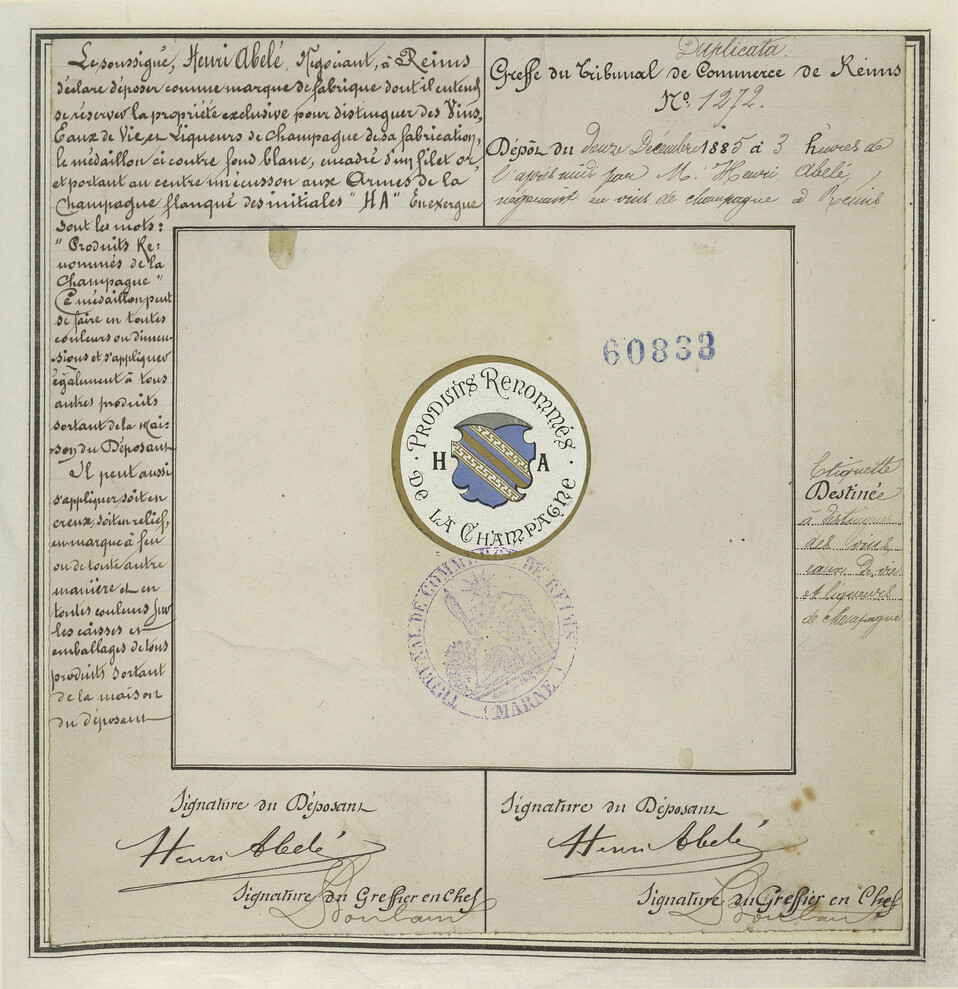 Le soussigné, Henri Abelé, Négociant, à Reims
déclare déposer comme marque de fabrique dont il entend
se réserver la propriété exclusive pour distinguer des Vins,
Eaux de Vie, et Liqueurs de Champagne de sa fabrication,
le médaillon ci contre fond blanc, encadré d'un filet or
et portant au centre un écusson aux Armes de la
Champagne flanqué des initiales "HA" En exergue
sont les mots:
"Produits Re:
nommés de la
Champagne"
Ce médaillon peut
se faire en toutes
couleurs ou dimen-
sions et s'appliquer
également à tous
autres produits
sortant de la Mai-
son du Déposant
Il peut aussi
s'appliquer, soit en
creux, soit en relief,
en marque à feu
ou de toute autre
manière et en
toutes couleurs sur
les caisses et
emballages de tous
produits sortant
de la maison
du déposant
Duplicata.
Greffe du Tribunal de Commerce de Reims
No. 1272.
Dépôt du deuze Décembre 1885 à 3 heures de
l'après midi par M. Henri Abelé,
négociant en vins de champagne à Reims
60833
PRODUITS RENOMMÉS
H A
DE LA CHAMPAGNE
TRIBUNAL DE COMMERCE DE REIMS
(MARNE)
Etiquette
Destinée
à distinguer
des vins,
eaux de vie
et liqueurs
de champagne
Signature du Déposant
Henri Abelé
Signature du Greffier en Chef
Signature du Déposant
Henri Abelé
Signature du Greffier en Chef